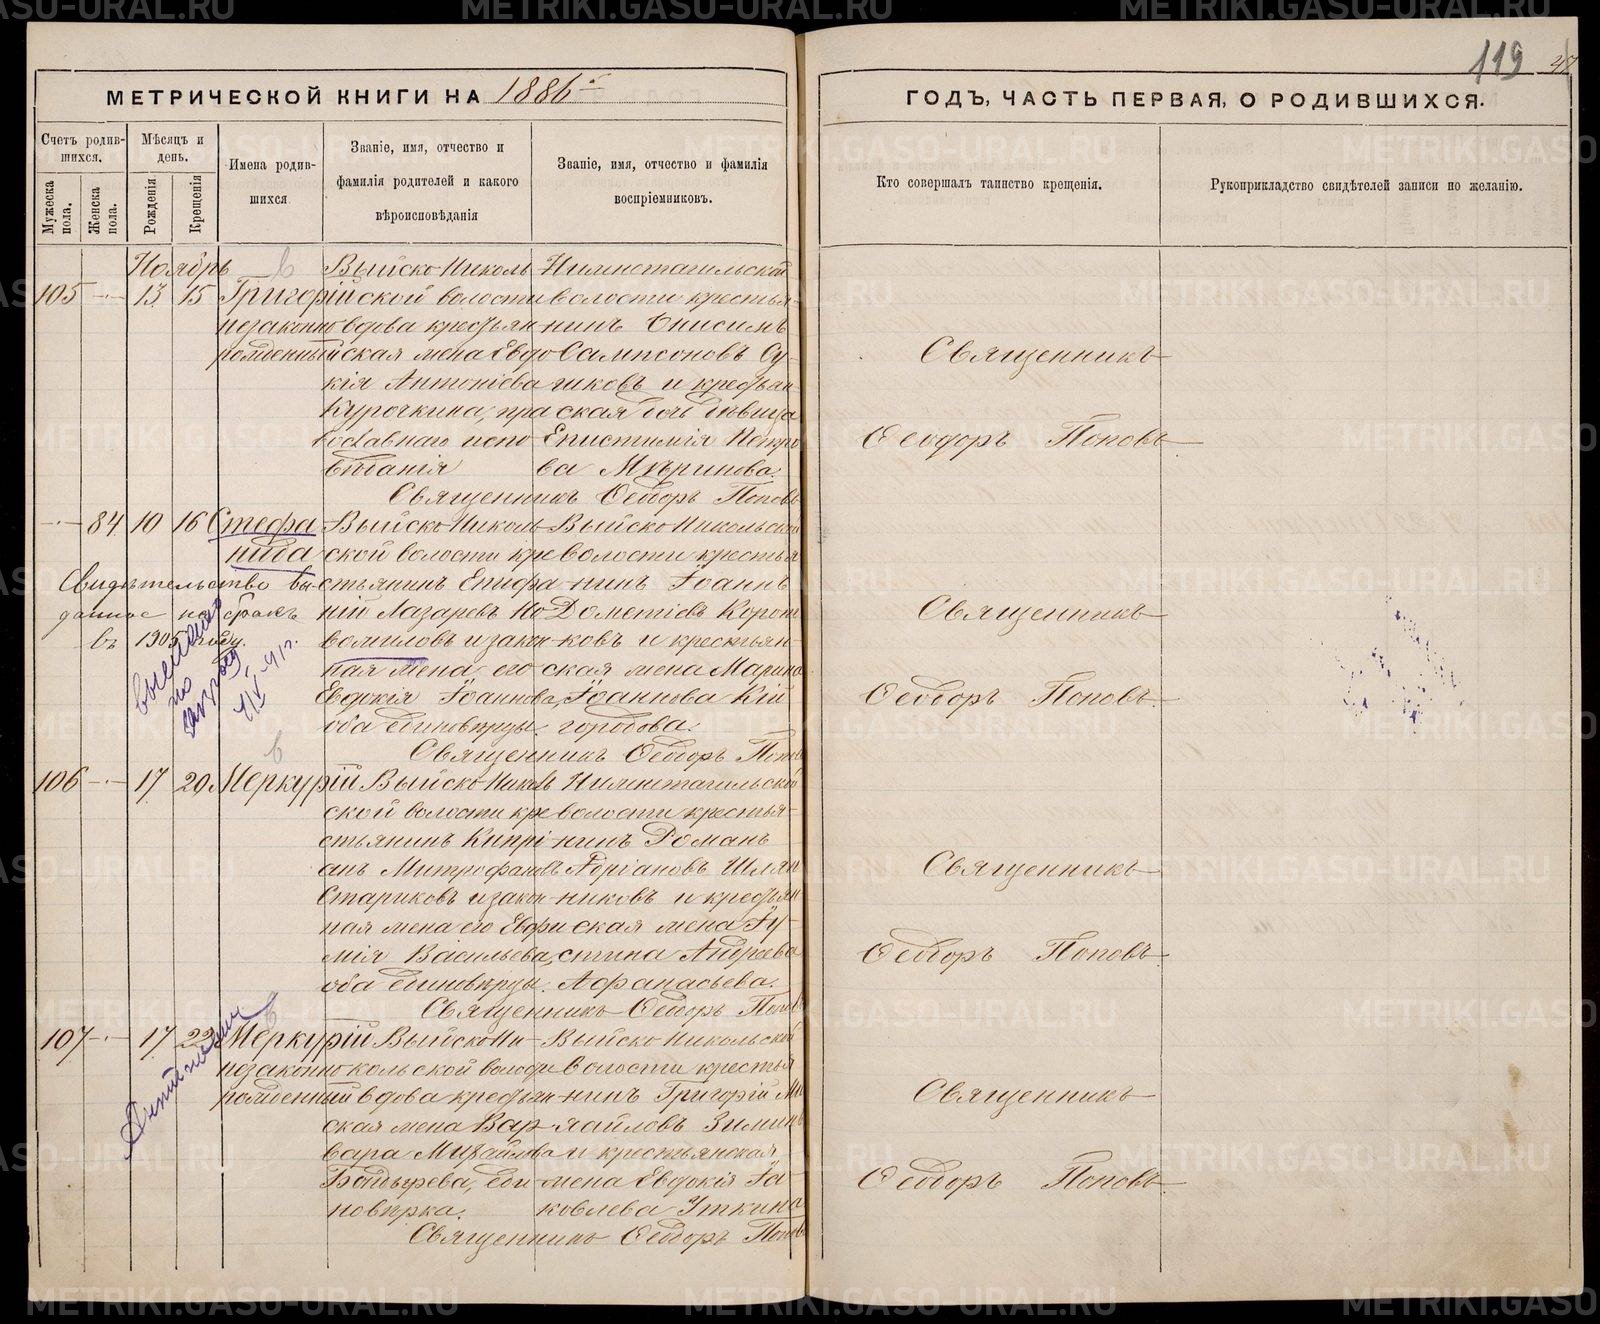 МЕТРИЧЕСКОЙ КНИГИ НА 1886 г
ГОДЪ, ЧАСТЬ ПЕРВАЯ, О РОДИВШИХСЯ.
119
Счетъ родив-
шихся.
Мужеска пола.
Женска пола.
Мѣсяцъ и день.
Рожденія
Крещенія
Имена родив-
шихся
Званіе, имя, отчество и
фамилія родителей и какого
вѣроисповѣданія
Званіе, имя, отчество и фамилія
воспріемниковъ.
Кто совершалъ таинство крещенія.
Рукоприкладство свидѣтелей записи по желанію.
Ноябрь
105 13 15
Григорій
незаконно
рожденный
Выйско Николь
ской волости
вдова крестьян
ская жена Евдо
кія Антоніева
Курочкина, пра
вославнаго испо
вѣданія
Нижнетагильской
волости крестья-
нинъ Онисимъ
Сампсоновъ Су-
чковъ и крестьян-
ская дочь дѣвица
Епистимія Петро
ва Мѣринова.
Священникъ Ѳеодоръ Поповъ
Священникъ
Ѳеодоръ Поповъ
84 10 16
Стефа
нида
Свидѣтельство вы-
данное на бракъ
въ 1905 году.
выслано
по
запросу
Выйско Николь
ской волости кре
стьянинъ Епифа
ній Лазаревъ Но
вожиловъ и закон
ная жена его
Евдокія Іоаннова,
оба единовѣрцы.
Выйско Никольской
волости крестья
нинъ Іоаннъ
Дометіевъ Корот
ковъ и крестьян-
ская жена Марина
Іоаннова Кий
городова.
Священникъ Ѳеодоръ Поповъ
Священникъ
Ѳеодоръ Поповъ.
106 17 20
Меркурій
Выйско Николь
ской волости кре
стьянинъ Кипрі
анъ Митрофановъ
Стариковъ и закон
ная жена его Евфи
мія Васильева,
оба единовѣрцы.
Нижнетагильской
волости крестья-
нинъ Романъ
Адріановъ Шлян
никовъ и крестьян
ская жена Іу-
стина Андреева
Афанасьева.
Священникъ Ѳеодоръ Поповъ
Священникъ
Ѳеодоръ Поповъ.
107 17 22
Меркурій
незаконно
рожденный
Выйско Ни-
кольской волости
вдова крестьян
ская жена Вар
вара Михайлова
Бондырева, еди
новѣрка.
Выйско Никольской
волости крестья
нинъ Григорій Ми
хайловъ Зиминъ
и крестьянская
жена Евдокія Іа-
ковлева Уткина
Священникъ Ѳеодоръ Поповъ
Священникъ
Ѳеодоръ Поповъ.
METRIKI.GASO-URAL.RU